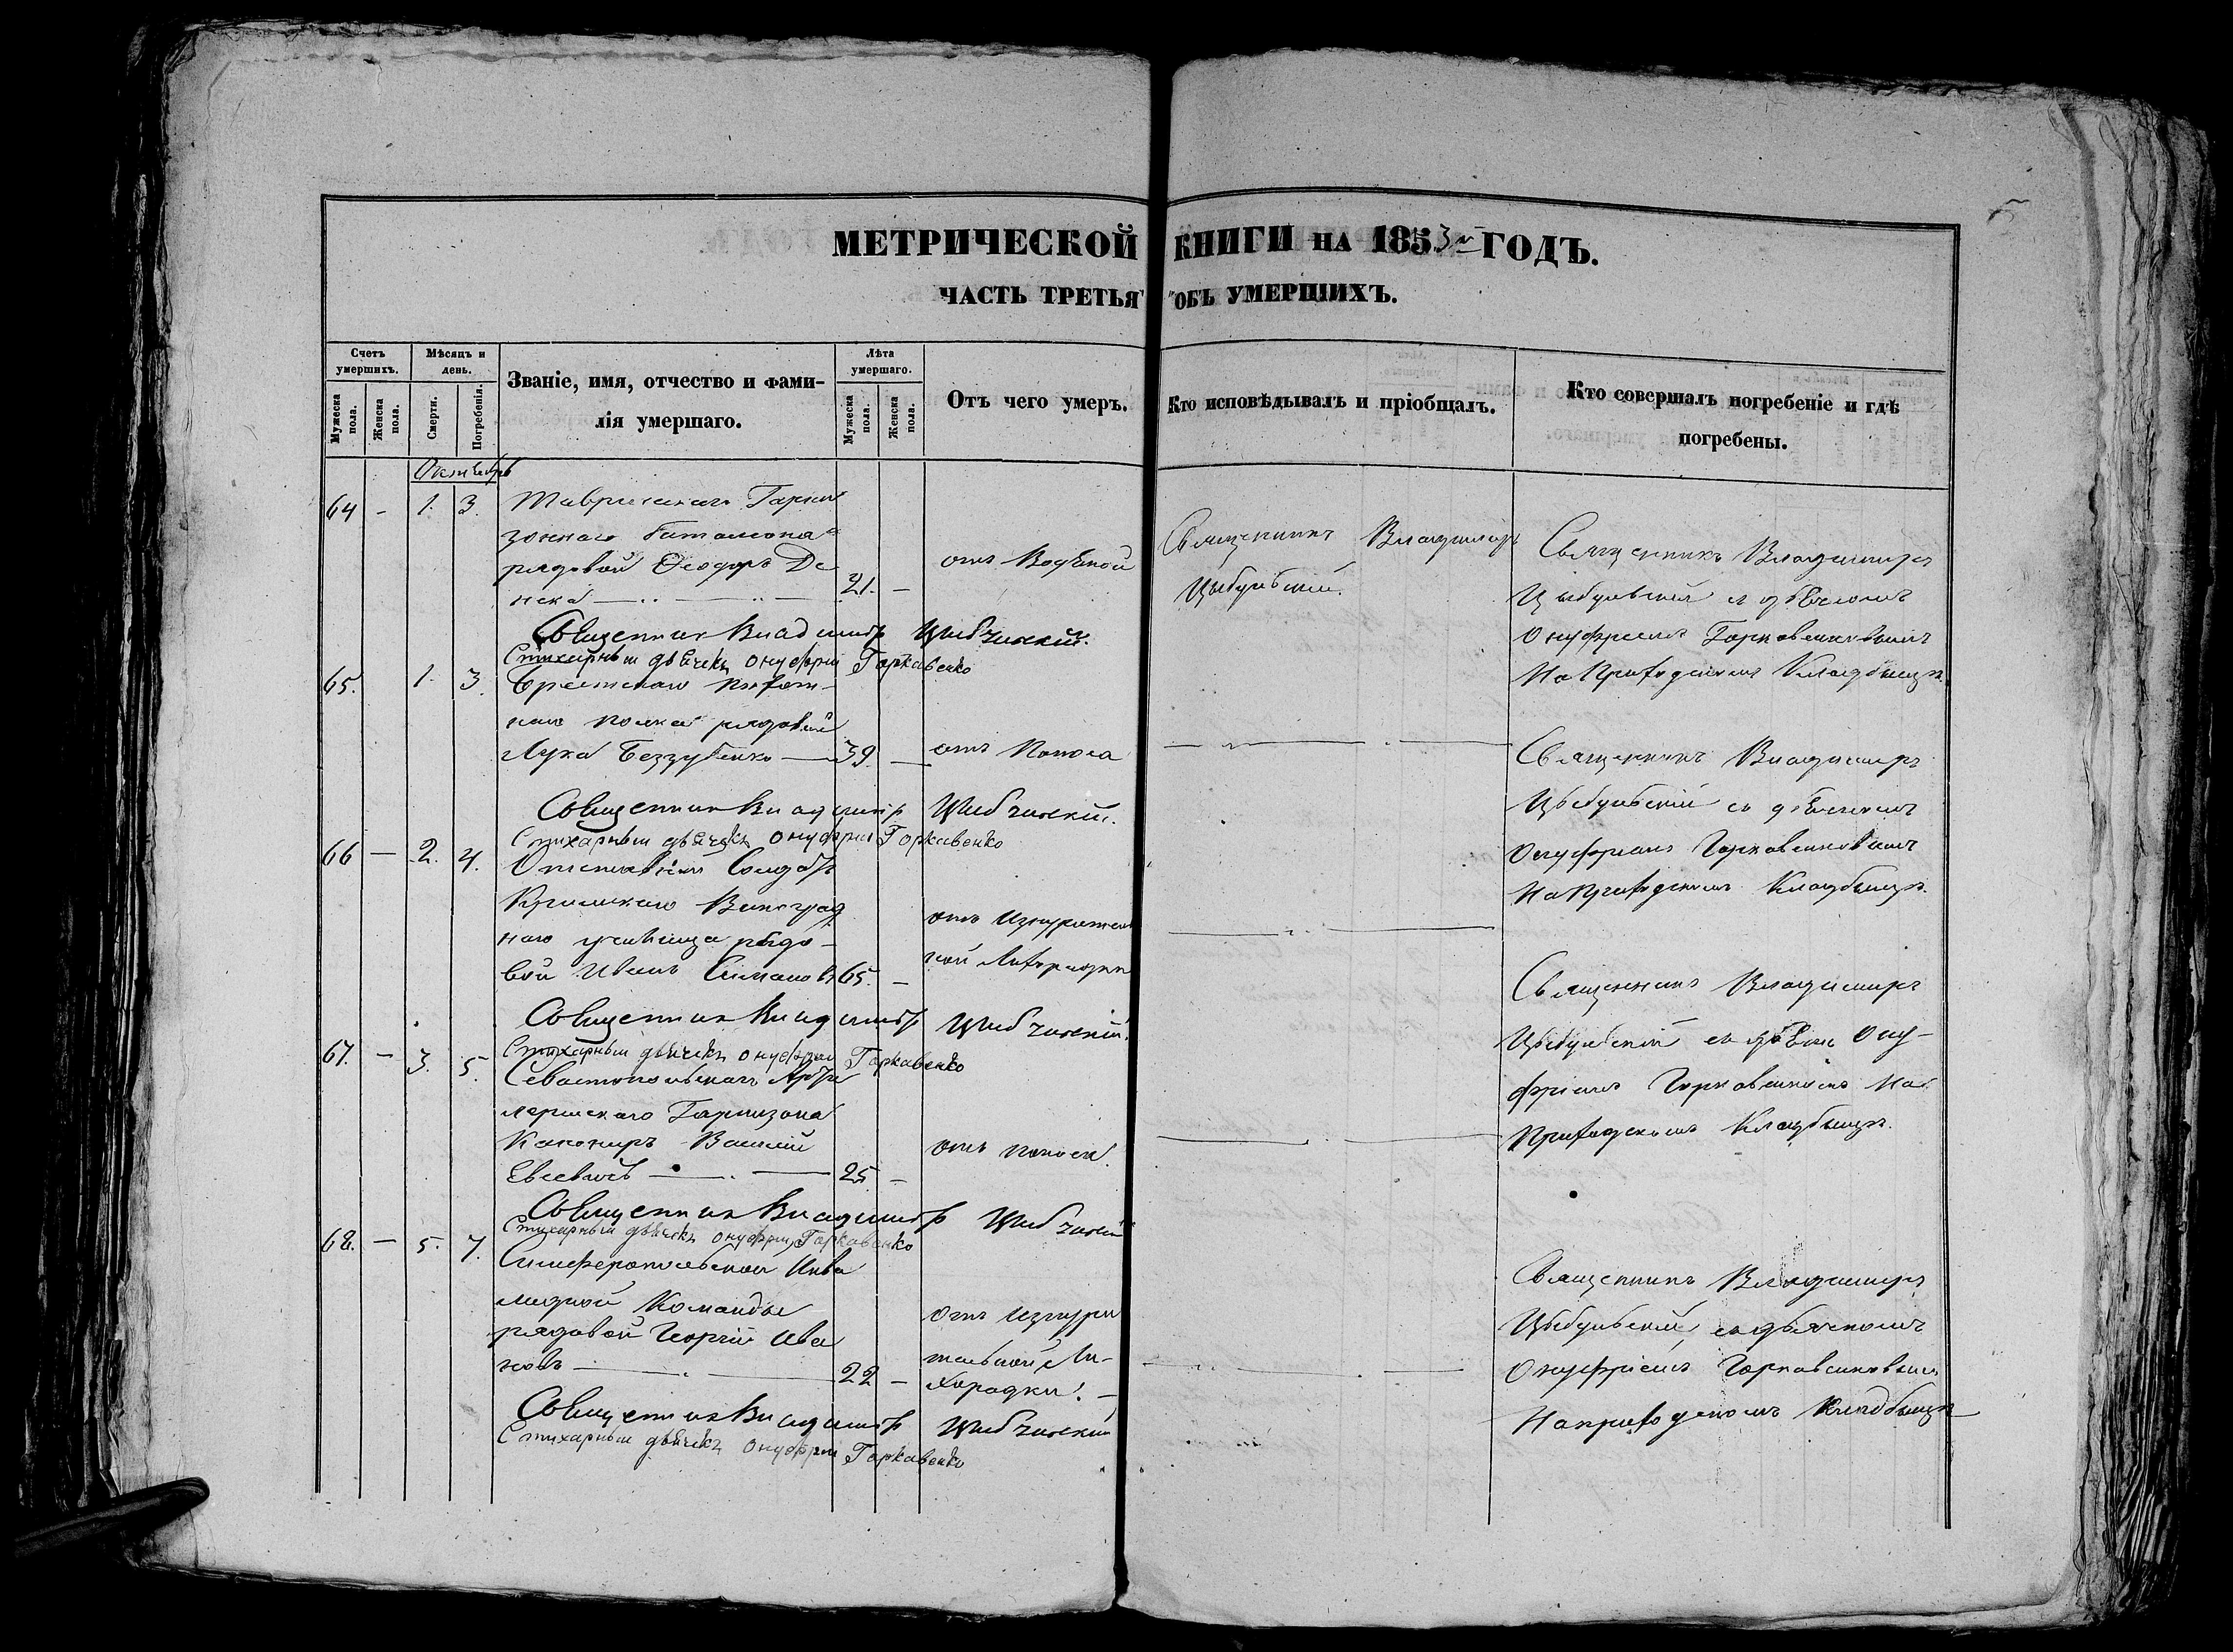 МЕТРИЧЕСКОЙ КНИГИ НА 1853й ГОДЪ.
ЧАСТЬ ТРЕТЬЯ ОБЪ УМЕРШИХЪ.
Счетъ умершихъ.
Мужеска пола.
Женска пола.
Мѣсяцъ и день.
Смерти.
Погребенія.
Званіе, имя, отчество и фами-
лія умершаго.
Лѣта умершаго.
Мужеска пола.
Женска пола.
Отъ чего умеръ.
Кто исповѣдывалъ и пріобщалъ.
Кто совершалъ погребеніе и гдѣ
погребены.
Октябрь
64 - 1. 3.
Таврическаго Гарни
зоннаго баталиона
рядовой Ѳеодоръ Де
21. -
отъ Водяной
Священникъ Владимиръ
Цыбульский.
Священникъ Владимиръ
Цыбульский съ дьячкомъ
Онуфриемъ Горковенковымъ
На Приходскомъ Кладбище.
Священник Владимир
Стихарный дьячекъ Онуфрий Горкавенко
65. 1. 3.
Брестскаго пехот-
наго полка рядовый
Лука Беззубенко — 39. —
отъ Поноса
Священникъ Владимиръ
Цыбульский съ дьячкомъ
Онуфриемъ Горковенковымъ
На Приходскомъ Кладбище.
Священник Владимир
Стихарный дьячекъ Онуфрий Горкавенко
66 — 2. 4.
Отставной Солдатъ
Крымскаго Виноград
наго училища рядо-
вой Иванъ Симановъ 65. —
отъ Изнурител
ной Лихорадки
Священникъ Владимиръ
Цыбульский съ дьячк Ону-
фриемъ Горковенкомъ На
Приходскомъ Кладбище.
Священник Владимир
Стихарный дьячекъ Онуфрий Горкавенко
67. — 3. 5.
Севастопольскаго Арти
лерийскаго Гарнизона
Канониръ Василий
25 —
отъ поноса.
Священник Владимир
Стихарный дьячекъ Онуфрий Горкавенко
68. — 5. 7.
Симферопольской Инва
лидной Команды
рядовой Георгий Ива
новъ — 22 —
отъ Изнури
тельной Ли-
хорадки. —
Священникъ Владимиръ
Цыбульский съ дьячкомъ
Онуфриемъ Горковенковым
На приходскомъ Кладбище
Священник Владимир
Стихарный дьячекъ Онуфрий Горкавенко